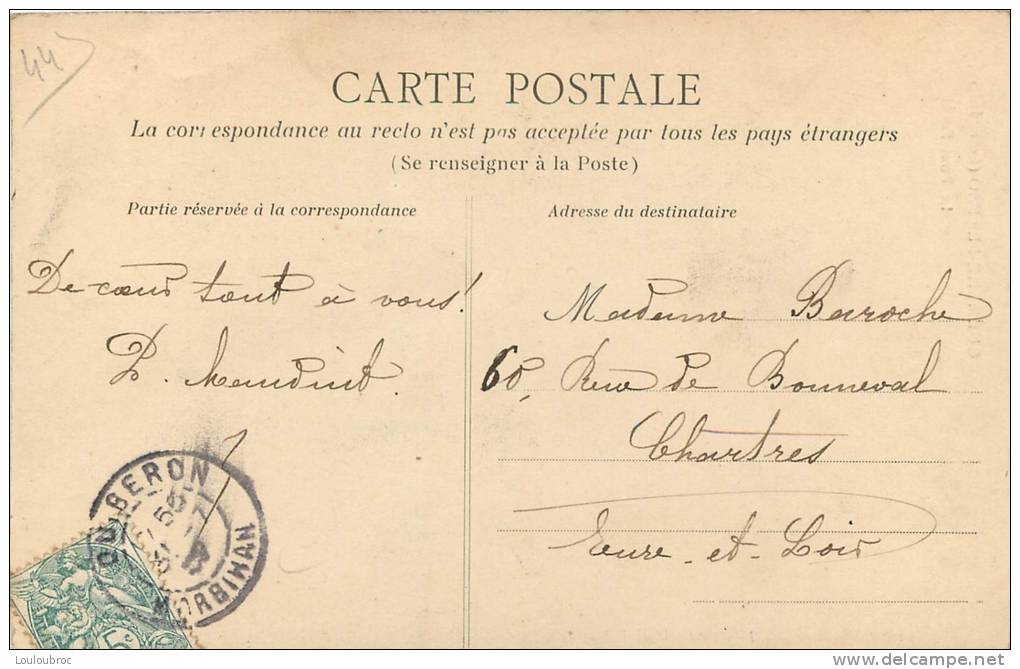 44
CARTE POSTALE
La correspondance au recto n'est pas acceptée par tous les pays étrangers
(Se renseigner à la Poste)
Partie réservée à la correspondance
Adresse du destinataire
De cœur tout à vous!
P.
Madame Baroche
60, Rue de Bonneval
Chartres
Eure-et-Loir
QUIBERON
MORBIHAN
5c
Louloubroc
delcampe.net